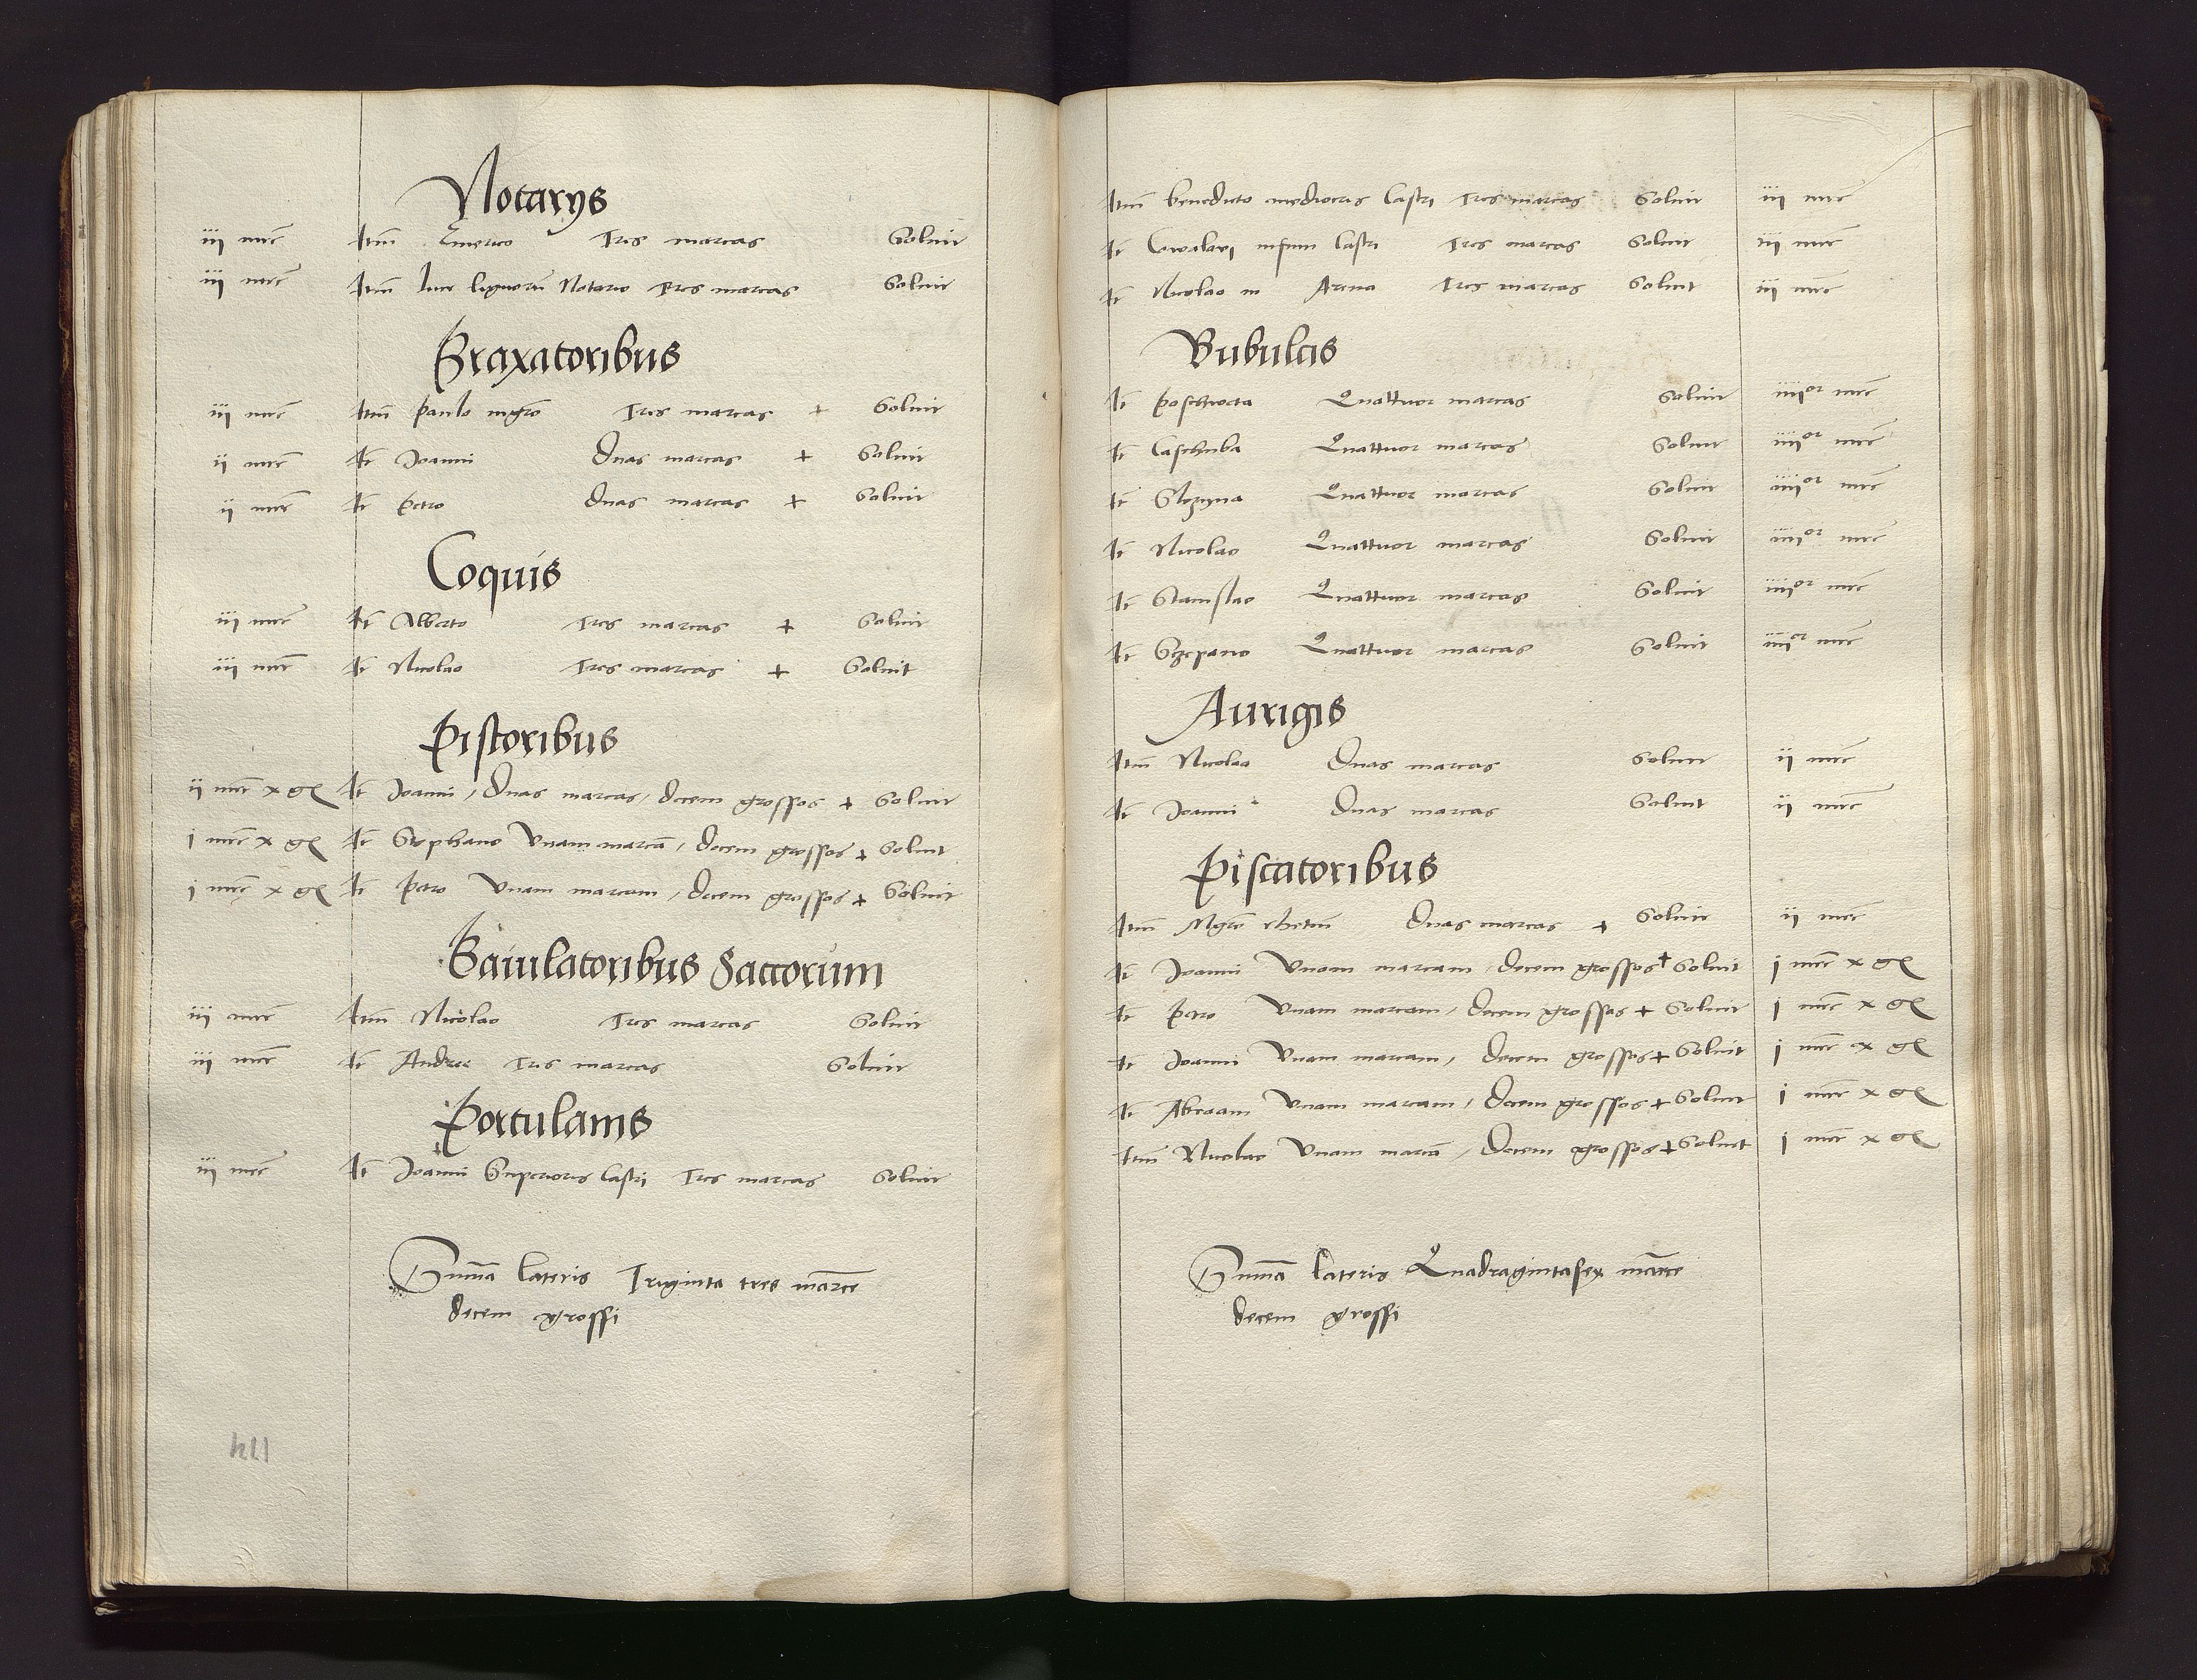 Notarys
iij mrc Itm Emerico Tres marcas Soluit
iij mrc Itm luce lignorū Notario Tres marcas Soluit
Braxatoribus
iij mrc Itm paulo nigro Tres marcas + Soluit
ij mrc It Joanni Duas marcas + Soluit
ij mrc It Petro duas marcas + Soluit
Coquis
iij mrc It Alberto Tres marcas + Soluit
iij mrc It Nicolao Tres marcas + Soluit
Pistoribus
ij mrc x gr It Joanni / Duas marcas / decem grossos + Soluit
i mrc x gr It Stephano Vnam marcā / decem grossos + Soluit
i mrc x gr It Petro Vnam marcam / decem grossos + Soluit
Baiulatoribus Saccorum
iij mrc Itm Nicolao Tres marcas Soluit
iij mrc It Andree Tres marcas Soluit
Portulanis
iij mrc It Joanni Superioris Castri Tres marcas Soluit
Summa lateris Triginta tres marce
decem grossi
174
Itm benedicto mediocris Castri Tres marcas Soluit iij mrc
It Cowalowi infimi Castri Tres marcas Soluit iij mrc
It Nicolao in Arena Tres marcas Soluit iij mrc
Bubulcis
It Quattuor marcas Soluit iiijor mrc
It Caschuba Quattuor marcas Soluit iiijor mrc
It Quattuor marcas Soluit iiijor mrc
It Nicolao Quattuor marcas Soluit iiijor mrc
It Stanislao Quattuor marcas Soluit iiijor mrc
It Sczepano Quattuor marcas Soluit iiijor mrc
Aurigis
Itm Nicolao Duas marcas Soluit ij mrc
It Joanni Duas marcas Soluit ij mrc
Piscatoribus
Itm Mgro Duas marcas + Soluit ij mrc
It Joanni Vnam marcam / decem grossos + Soluit i mrc x gr
It Petro Vnam marcam / decem grossos + Soluit i mrc x gr
It Joanni Vnam marcam / decem grossos + Soluit i mrc x gr
It Abraam Vnam marcam / decem grossos + Soluit i mrc x gr
Itm Nicolao Vnam marcā / decem grossos + Soluit i mrc x gr
Summa lateris Quadragintasex marce
decem grossi